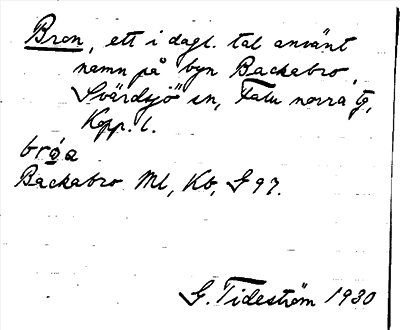 Bron, ett i dagl. tal använt
namn på byn Backabro,
Svärdsjö sn, Falu norra tg,
Kopp. l.
bróa
Backabro Ml, Kb, G 97.
G. Tideström 1930